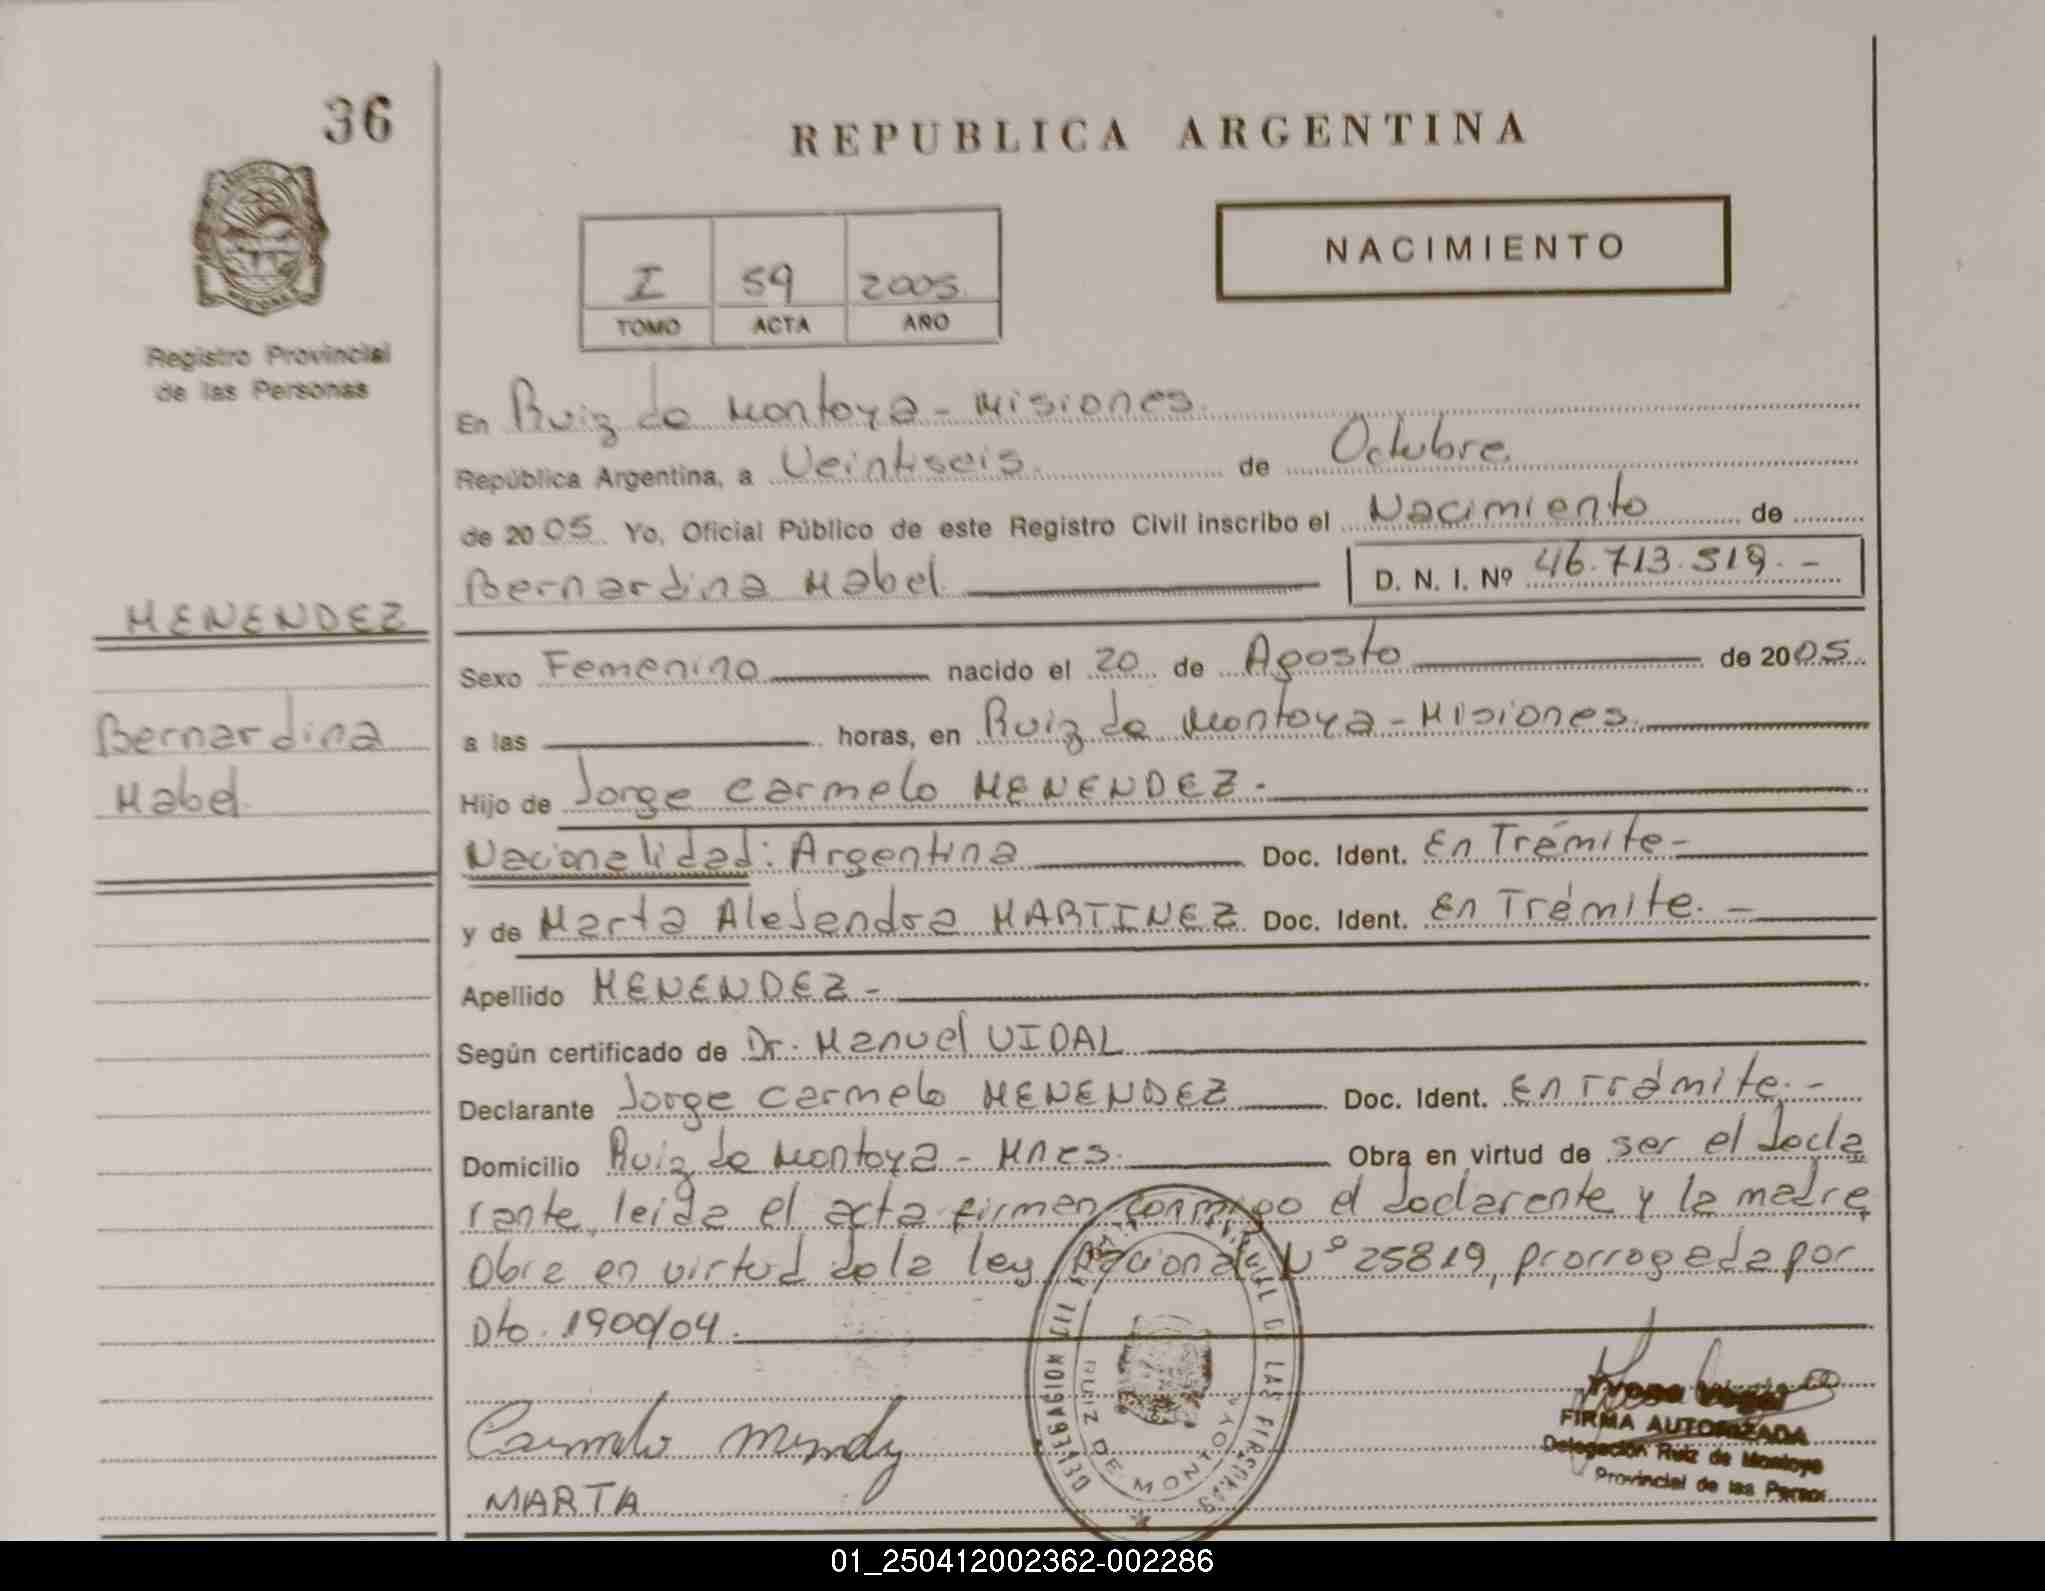 36
REPUBLICA ARGENTINA
NACIMIENTO
I 59 2005
TOMO ACTA AÑO
Registro Provincial
de las Personas
En Ruiz de Montoya - Misiones
República Argentina, a Veintiseis de Octubre
de 2005 Yo, Oficial Público de este Registro Civil inscribo el Nacimiento de
Bernardina Mabel D. N. I. Nº 46.713.519.-
MENENDEZ
Bernardina
Mabel
Sexo Femenino nacido el 20 de Agosto de 2005
a las horas, en Ruiz de Montoya - Misiones
Hijo de Jorge Carmelo MENENDEZ.
Nacionalidad: Argentina Doc. Ident. En Trámite-
y de Marta Alejandra MARTINEZ Doc. Ident. En Trámite.-
Apellido MENENDEZ-
Según certificado de Dr. Manuel VIDAL
Declarante Jorge Carmelo MENENDEZ Doc. Ident. En Trámite.-
Domicilio Ruiz de Montoya - Mnes. Obra en virtud de ser el decla
rante, leida el acta firman conmigo el declarante y la madre,
Obra en virtud de la ley Nacional Nº 25819, prorrogada por
Dto. 1900/04.
Carmelo
MARTA
RUIZ DE MONTOYA
FIRMA AUTORIZADA
Delegación Ruiz de Montoya
Provincial de las Person
01_250412002362-002286